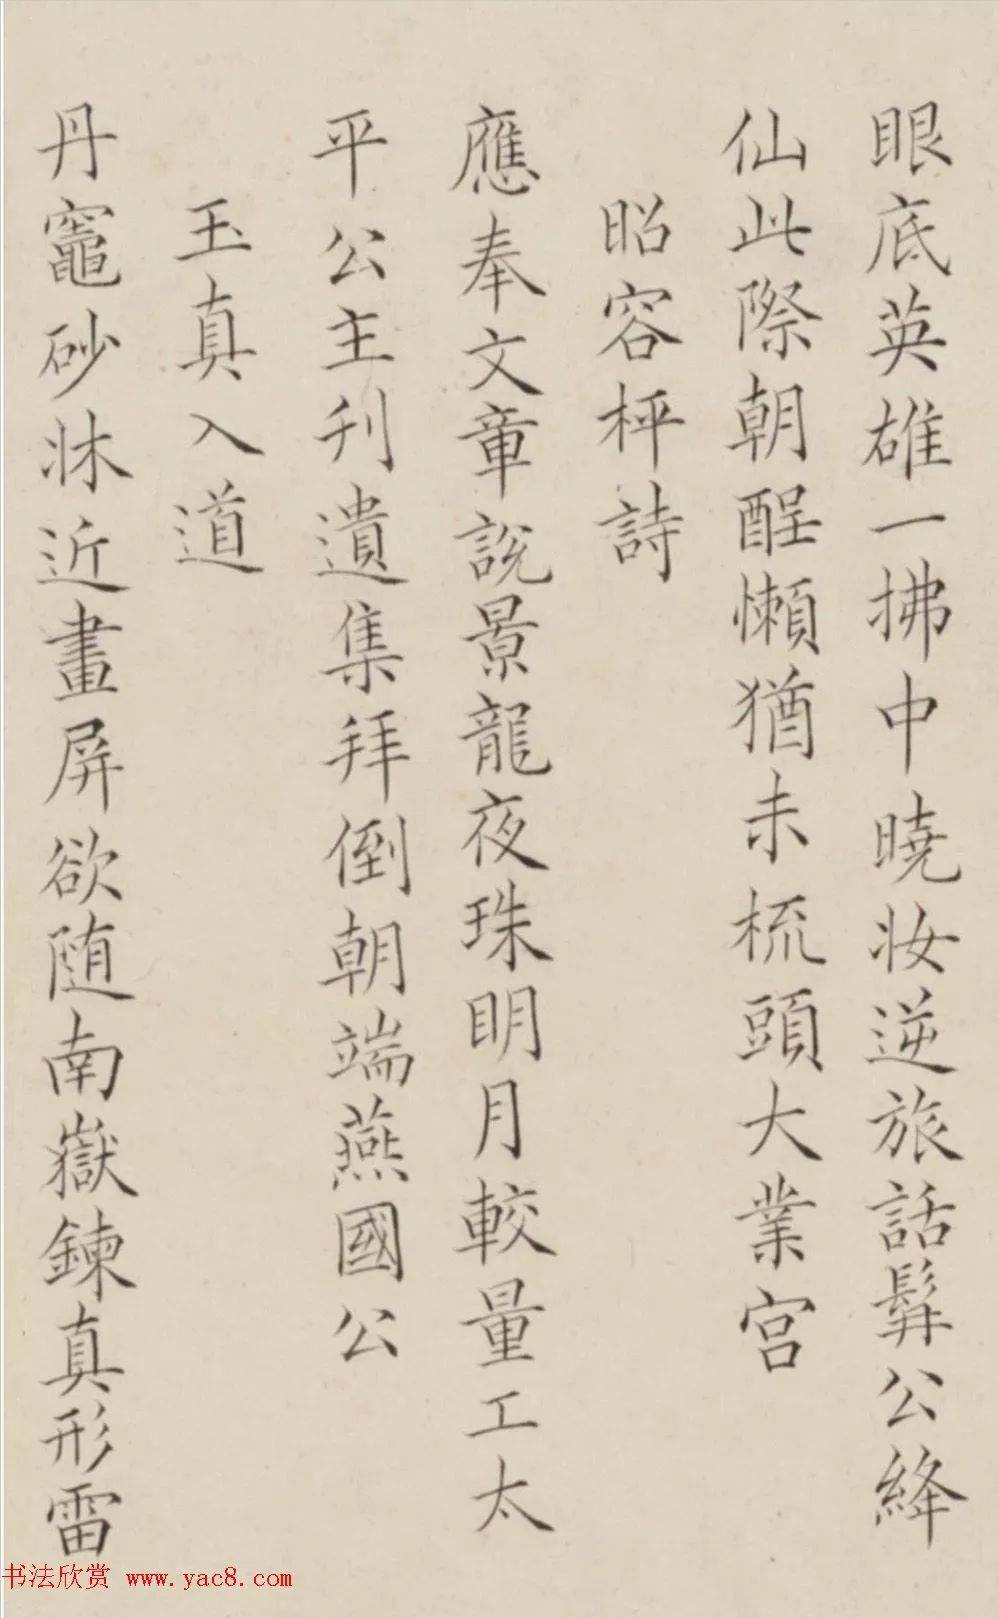 眼底英雄一拂中曉妝逆旅話髯公絳
仙此際朝酲懶猶未梳頭大業宮
昭容枰詩
應奉文章說景龍夜珠明月較量工太
平公主刋遺集拜倒朝端燕國公
玉真入道
丹竈砂牀近畫屏欲随南嶽鍊真形雷
书法欣赏 www.yac8.com